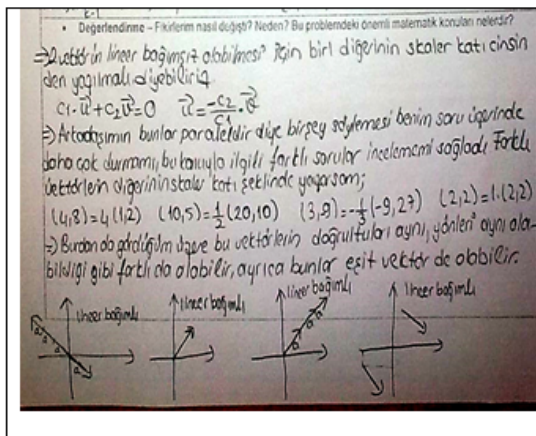 • Değerlendirme – Fikirlerim nasıl değişti? Neden? Bu problemdeki önemli matematik konuları nelerdir?
⇒ 2 vektörün lineer bağımsız olabilmesi için biri diğerinin skaler katı cinsin
den yazılmalı diyebiliriz
C1·u⃗+C2v⃗=0 u⃗=-C2/C1·v⃗
⇒ Arkadaşımın bunlar paraleldir diye birşey söylemesi benim soru üzerinde
daha çok durmamı, bu konuyla ilgili farklı sorular incelememi sağladı. Farklı
vektörlerin diğerinin skaler katı şeklinde yazarsam;
(4,8)=4(1,2) (10,5)=1/2(20,10) (3,9)=-1/3(-9,27) (2,2)=1·(2,2)
⇒ Burdan da gördüğüm üzere bu vektörlerin doğrultuları aynı, yönleri aynı ola
bildiği gibi farklı da olabilir, ayrıca bunlar eşit vektör de olabilir.
lineer bağımlı lineer bağımlı lineer bağımlı lineer bağımlı